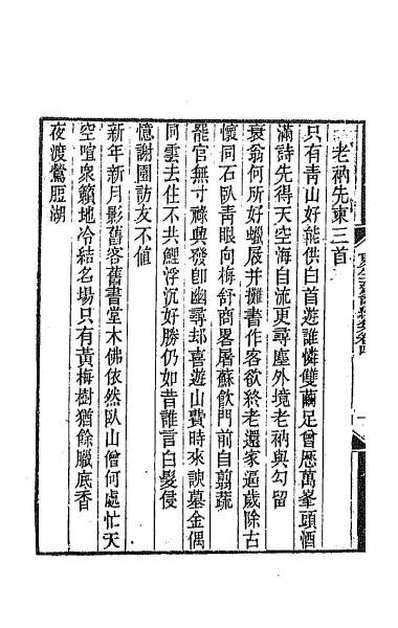 老衲先東三首
只有青山好能供白首遊誰憐雙繭足曾歷萬峯頭酒
滿詩先得天空海自流更尋塵外境老衲與勾留
衰翁何所好蠟屐并攤書作客欲終老還家逼歲除古
懷同石臥青眼向梅舒商畧屠蘇飲門前自翦蔬
罷官無寸祿興發卽幽尋却喜遊山費時來諛墓金偶
同雲去住不共鯉浮沉好勝仍如昔誰言白髮侵
憶謝園訪友不値
新年新月影舊客舊書堂木佛依然臥山僧何處忙天
空喧衆籟地冷結名場只有黃梅樹猶餘臘底香
夜渡鶯脰湖